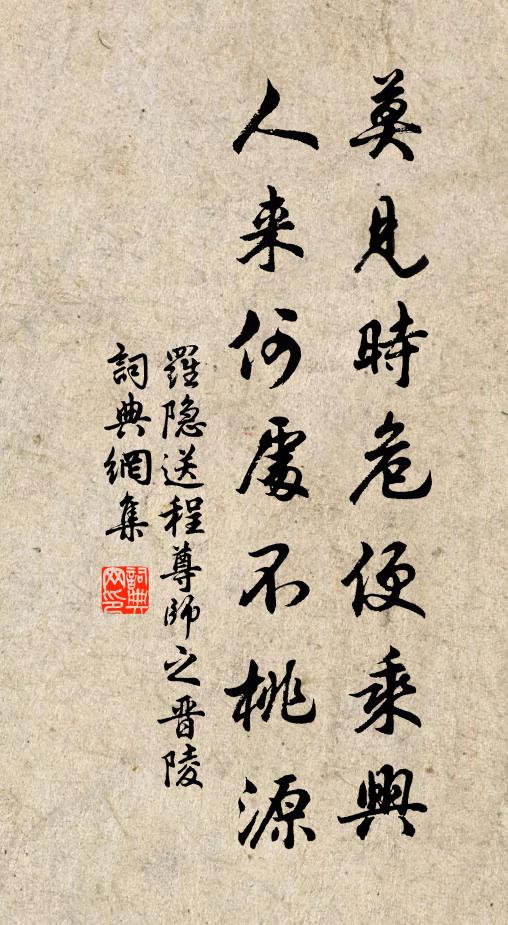 莫見時危便乘興
人来何處不桃源
羅隐送程尊師之晋陵
詞典網集
詞典